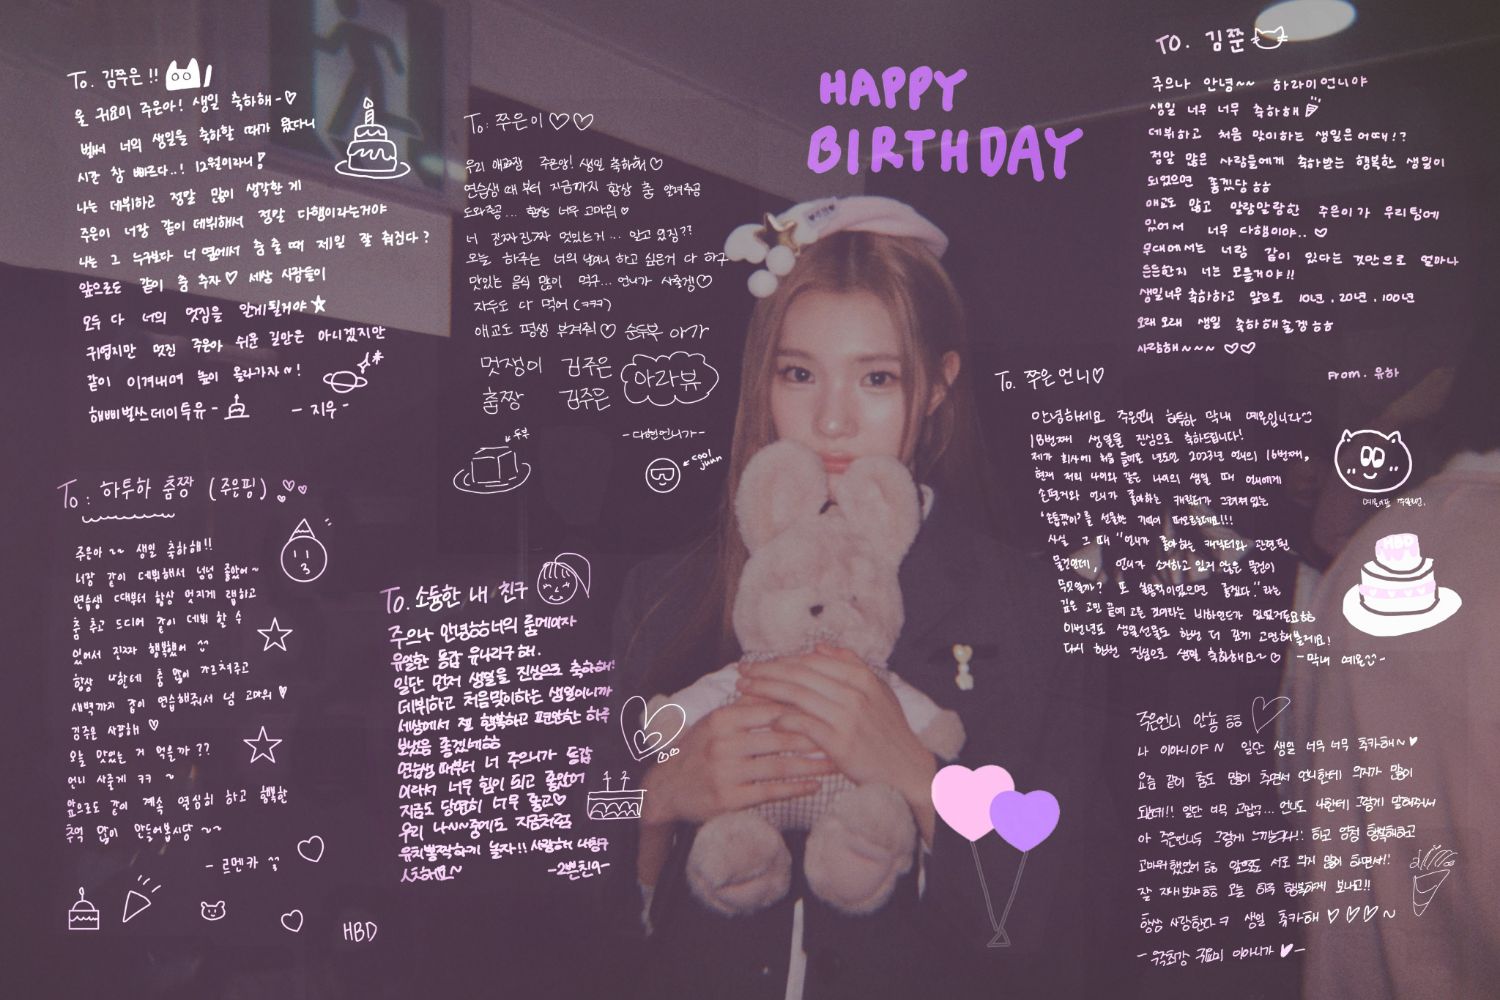 HAPPY
BIRTHDAY
To. 김쭈은!!
울 귀요미 주은아! 생일 축하해~♡
벌써 너의 생일을 축하할 때가 왔다니
시간 참 빠르다..! 12월이라니!
나는 데뷔하고 정말 많이 생각한 게
주은이 너랑 같이 데뷔해서 정말 다행이라는거야
나는 그 누구보다 너 옆에서 춤 출 때 제일 잘 춰진다?
앞으로도 같이 춤 추자♡ 세상 사람들이
모두 다 너의 멋짐을 알게될거야☆
귀엽지만 멋진 주은아 쉬운 길만은 아니겠지만
같이 이겨내며 높이 올라가자~!
해삐벌쓰데이투유-
- 지우 -
To: 쭈은이♡♡
우리 애교짱 주은이! 생일 축하해♡
연습생 때 부터 지금까지 항상 춤 알려주공
도와주공... 항상 너무 고마워♡
너 진짜진짜 멋있는거... 알고 있징??
오늘 하루는 너의 날이니 하고 싶은거 다 하구
맛있는 음식 많이 먹구... 언니가 사줄겡♡
자두도 다 먹어 (ㅋㅋㅋ)
애교도 평생 부려줘♡ 순두부 아가
멋쟁이 김주은
춤짱 김주은
아라뷰
두부
- 다현언니가 -
cool
juun
TO. 김쭌
주으나 안녕~~ 하라미언니야
생일 너무 너무 축하해
데뷔하고 처음 맞이하는 생일은 어때!?
정말 많은 사람들에게 축하받는 행복한 생일이
되었으면 좋겠당ㅎㅎ
애교도 많고 말랑말랑한 주은이가 우리팀에
있어서 너무 다행이야..♡
무대에서는 너랑 같이 있다는 것만으로 얼마나
든든한지 너는 모를거야!!
생일너무 축하하고 앞으로 10년, 20년, 100년
오래오래 생일 축하해줄겡ㅎㅎ
사랑해~~~♡♡
From. 유하
To. 쭈은언니♡
안녕하세요 주은언니 하투하 막내 예온입니다
18번째 생일을 진심으로 축하드립니다!
제가 회사에 처음 들어온 년도인 2023년 언니의 16번째,
현재 저의 나이와 같은 나이의 생일 때 언니에게
손편지와 언니가 좋아하는 캐릭터가 그려져있는
'손톱깎이'를 선물한 기억이 떠오르는데요!!!
사실 그 때 "언니가 좋아하는 캐릭터와 관련된
물건인데, 언니가 소지하고 있지 않은 물건이
무엇일까? 또 실용적이었으면 좋겠다."라는
깊은 고민 끝에 고른 것이라는 비하인드가 있었거든요ㅎㅎ
이번년도 생일선물도 한번 더 깊게 고민해볼게요!
다시 한번 진심으로 생일 축하해요~♡ -막내 예온-
HBD
To: 하투하 춤짱 (주은핑)
주은아~~ 생일 축하해!!
너랑 같이 데뷔해서 넘넘 좋았어~
연습생 때부터 항상 멋지게 랩하고
춤 추고 드디어 같이 데뷔 할 수
있어서 진짜 행복했어
항상 나한테 춤 많이 가르쳐주고
새벽까지 같이 연습해줘서 넘 고마워♥
김주은 사랑해♡
오늘 맛있는 거 먹을까??
언니 사줄게 ㅋㅋ ~
앞으로도 같이 계속 열심히 하고 행복한
추억 많이 만들어봅시당~~
- 르멘카
HBD
To. 소듕한 내 친구
주으나 안녕ㅎㅎ너의 룸메이자
유일한 동갑 유나라구해.
일단 먼저 생일을 진심으로 축하해!
데뷔하고 처음맞이하는 생일이니까
세상에서 젤 행복하고 편안한 하루
보냈음 좋겠네ㅎㅎ
연습생때부터 너 주으니가 동갑
이라서 너무 힘이 되고 좋았어
지금도 당연히 너무 좋고♡
우리 나~~중에도 지금처럼
유치뽕짝하게 놀자!! 사랑해 내칭구
주은언니 안뇽ㅎㅎ
나 이아니야~ 일단 생일 너무너무 축카해~♥
요즘 같이 춤도 많이 추면서 언니한테 의지가 많이
돼는데!! 일단 너무 고맙구... 언니도 나한테 그렇게 말해줘서
아 주은언니두 그렇게 느끼는구나!! 하고 엄청 행복해하고
고마워했었어ㅎㅎ 앞으로도 서로 의지 많이 하면서!!
잘 지내보쟈ㅎㅎ 오늘 하루 행복하게 보내고!!
항상 사랑한다ㅋ 생일 축카해♡♡♡~
- 우주최강 귀요미 이아니가♥-